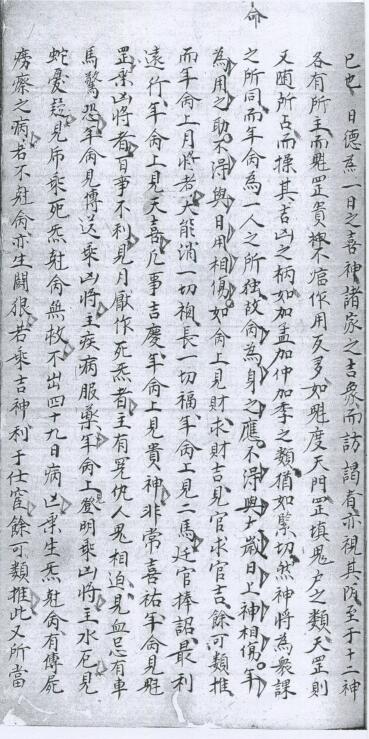 命
已也日德為一日之喜神諸家之吉象而訪謁者亦視其陰至于十二神
各有所主而魁罡貴極不當作用反多如魁度天門罡填鬼户之類天罡則
又随所占而操其吉凶之柄如加孟加仲加季之類猶如緊切然神將為衆課
之所同而年命為一人之所独故命為身之應不淂與太歲日上神相傷年
為用之助不淂與日用相傷如命上見財求財吉見官求官吉餘可類推
而年命上月將者大能消一切禍長一切福年命上見二馬廷官捧詔最利
遠行年命上見天喜凢事吉慶年命上見貴神非常喜祐年命見魁
罡乗凶將者百事不利見月厭作死炁者主有冤仇人鬼相迫見血忌有車
馬驚恐年命見傳送乗凶將主疾病服藥年命上登明乗凶將主水厄見
蛇憂疑見吊乘死炁尅命無救不出四十九日病凶乘生炁尅命有傳屍
癆瘵之病若不尅命亦生鬪狠若乘吉神利于仕宦餘可類推此又所當